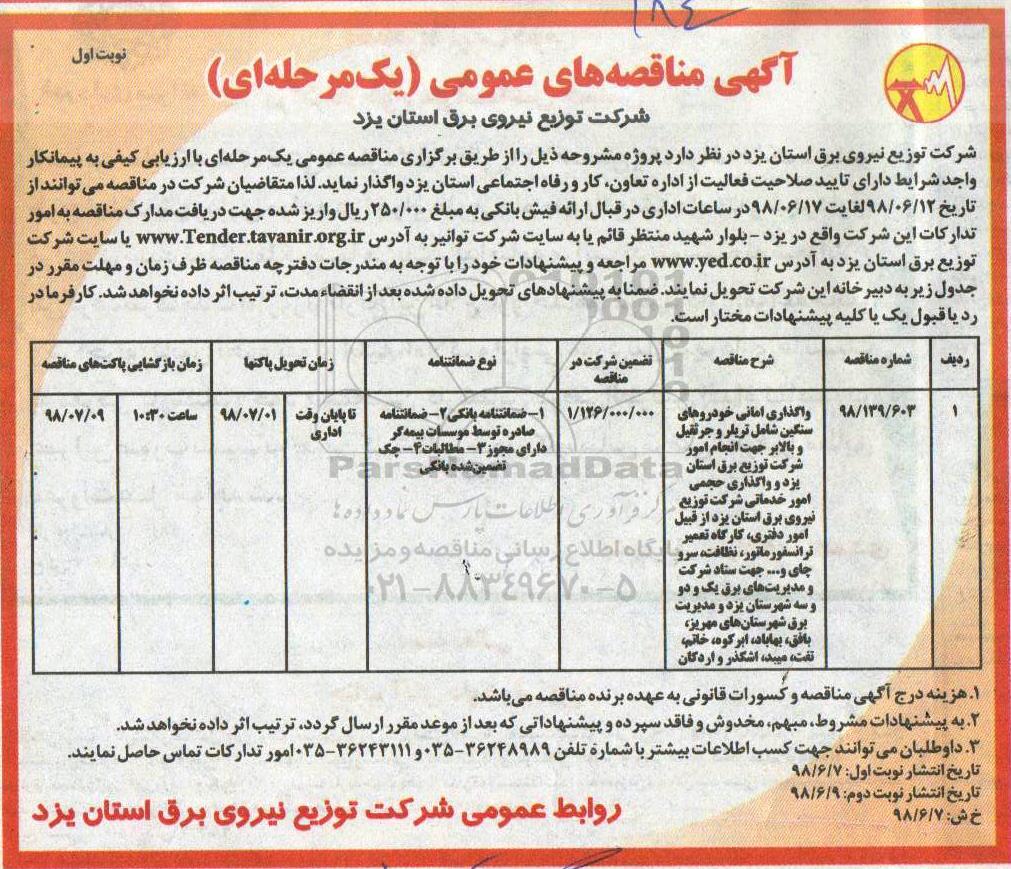 نوبت اول
آگهی مناقصه‌های عمومی (یک‌مرحله‌ای)
شرکت توزیع نیروی برق استان یزد
شرکت توزیع نیروی برق استان یزد در نظر دارد پروژه مشروحه ذیل را از طریق برگزاری مناقصه عمومی یک‌مرحله‌ای با ارزیابی کیفی به پیمانکار
واجد شرایط دارای تایید صلاحیت فعالیت از اداره تعاون، کار و رفاه اجتماعی استان یزد واگذار نماید. لذا متقاضیان شرکت در مناقصه می‌توانند از
تاریخ ۹۸/۰۶/۱۲ لغایت ۹۸/۰۶/۱۷ در ساعات اداری در قبال ارائه فیش بانکی به مبلغ ۲۵۰/۰۰۰ ریال واریز شده جهت دریافت مدارک مناقصه به امور
تدارکات این شرکت واقع در یزد - بلوار شهید منتظر قائم یا به سایت شرکت توانیر به آدرس www.Tender.tavanir.org.ir یا سایت شرکت
توزیع برق استان یزد به آدرس www.yed.co.ir مراجعه و پیشنهادات خود را با توجه به مندرجات دفترچه مناقصه ظرف زمان و مهلت مقرر در
جدول زیر به دبیرخانه این شرکت تحویل نمایند. ضمنا به پیشنهادهای تحویل داده شده بعد از انقضاء مدت، ترتیب اثر داده نخواهد شد. کارفرما در
رد یا قبول یک یا کلیه پیشنهادات مختار است.
ردیف
شماره مناقصه
شرح مناقصه
تضمین شرکت در
مناقصه
نوع ضمانتنامه
زمان تحویل پاکتها
زمان بازگشایی پاکت‌های مناقصه
۱
۹۸/۱۳۹/۶۰۳
واگذاری امانی خودروهای
سنگین شامل تریلر و جرثقیل
و بالابر جهت انجام امور
شرکت توزیع برق استان
یزد و واگذاری حجمی
امور خدماتی شرکت توزیع
نیروی برق استان یزد از قبیل
امور دفتری، کارگاه تعمیر
ترانسفورماتور، نظافت، سرو
چای و... جهت ستاد شرکت
و مدیریت‌های برق یک و دو
و سه شهرستان یزد و مدیریت
برق شهرستان‌های مهریز،
بافق، بهاباد، ابرکوه، خاتم،
تفت، میبد، اشکذر و اردکان
۱/۱۲۶/۰۰۰/۰۰۰
۱- ضمانتنامه بانکی ۲- ضمانتنامه
صادره توسط موسسات بیمه‌گر
دارای مجوز ۳- مطالبات ۴- چک
تضمین‌شده بانکی
تا پایان وقت
اداری
۹۸/۰۷/۰۱
ساعت ۱۰:۳۰
۹۸/۰۷/۰۹
ParsNamadData
مرکز فرآوری اطلاعات پارس نماد داده ها
پایگاه اطلاع رسانی مناقصه و مزایده
۰۲۱-۸۸۳۴۹۶۷۰-۵
۱. هزینه درج آگهی مناقصه و کسورات قانونی به عهده برنده مناقصه می‌باشد.
۲. به پیشنهادات مشروط، مبهم، مخدوش و فاقد سپرده و پیشنهاداتی که بعد از موعد مقرر ارسال گردد، ترتیب اثر داده نخواهد شد.
۳. داوطلبان می‌توانند جهت کسب اطلاعات بیشتر با شماره تلفن ۳۶۲۴۸۹۸۹-۰۳۵ و ۳۶۲۴۳۱۱۱-۰۳۵ امور تدارکات تماس حاصل نمایند.
تاریخ انتشار نوبت اول: ۹۸/۶/۷
تاریخ انتشار نوبت دوم: ۹۸/۶/۹
خ ش: ۹۸/۶/۷
روابط عمومی شرکت توزیع نیروی برق استان یزد